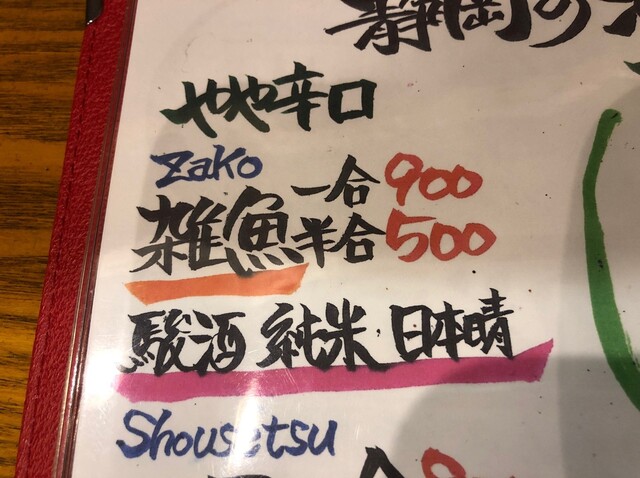 静岡の
やや辛口
Zako
雑魚 一合 900
半合 500
駿酒 純米 日本晴
Shousetsu